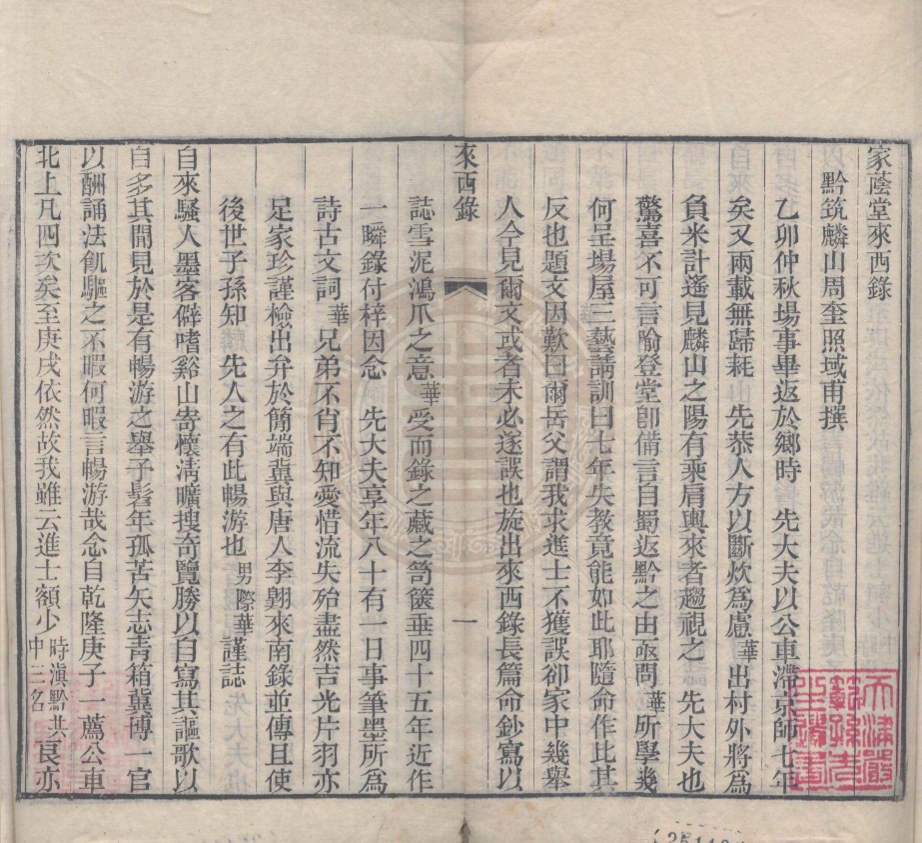 家蔭堂來西錄
黔筑麟山周奎照域甫撰
乙卯仲秋場事畢返於鄉時　先大夫以公車滯京師七年
矣又兩載無歸耗　先恭人方以斷炊為慮華出村外將為
負米計遙見麟山之陽有乘肩輿來者趨視之　先大夫也
驚喜不可言喻登堂卽備言自蜀返黔之由亟問華所學幾
何呈塲屋三藝請訓曰七年失教竟能如此耶隨命作比其
反也題文因歎曰爾岳父謂我求進士不獲誤卻家中幾舉
人今見爾文或者未必遂誤也旋出來西錄長篇命鈔寫以
來西錄
一
誌雪泥鴻爪之意華受而錄之藏之笥篋垂四十五年近作
一瞬錄付梓因念　先大夫享年八十有一日事筆墨所為
詩古文詞華兄弟不肖不知愛惜流失殆盡然吉光片羽亦
足家珍謹檢出弁於簡端冀與唐人李翺來南錄並傳且使
後世子孫知　先人之有此暢游也男際華謹誌
自來騷人墨客僻嗜谿山寄懷淸曠搜奇覽勝以自寫其謳歌以
自多其聞見於是有暢游之舉予髫年孤苦矢志靑箱冀博一官
以酬誦法飢驅之不暇何暇言暢游哉念自乾隆庚子一薦公車
北上凡四次矣至庚戌依然故我雖云進士額少時滇黔共中三名良亦